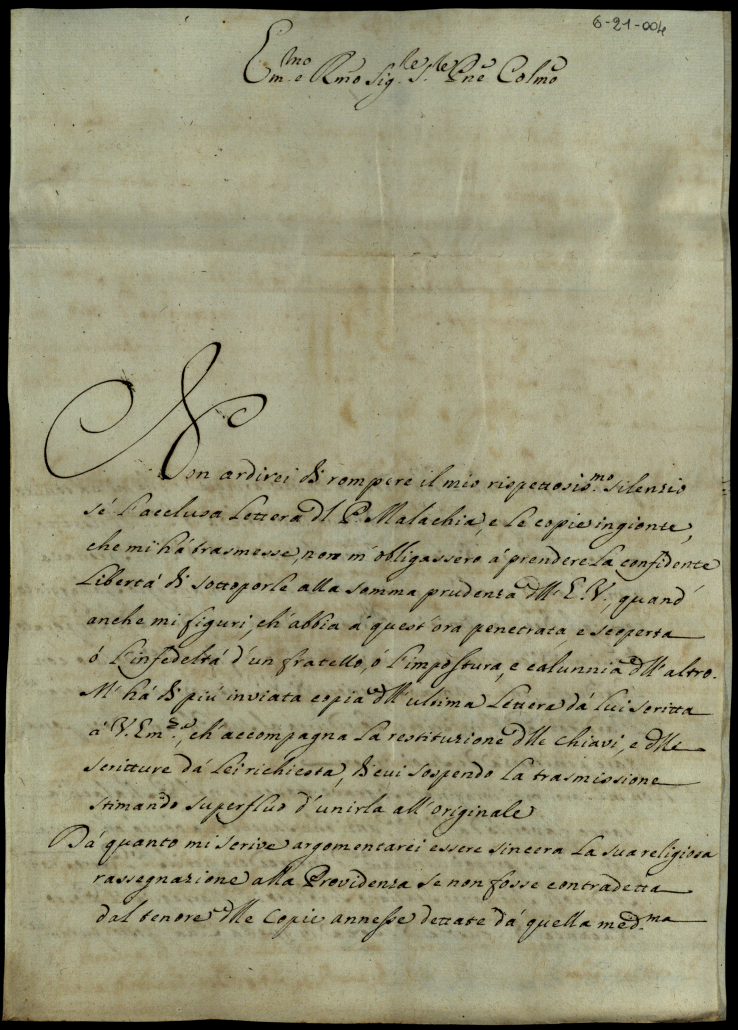 6-21-004
Em.mo e Rmo Sig.re S.re Pne Colmo
Non ardirei di rompere il mio rispettosis.mo silenzio
sé l'acclusa Lettera dl P. Malachia, e le copie ingionte,
che mi há trasmesse, non m'obligassero á prendere la confidente
libertá di sottoporle alla somma prudenza dll' E.V., quand'
anche mi figuri, ch'abbia á quest'ora penetrata e scoperta
ó l'infedeltá d'un fratello, ó l'impostura, e calunnia dll'altro.
M'há di piú inviata copia dll'ultima Lettera dá lui scritta
á V. Em.za, ch'accompagna la restituzione dlle chiavi, e dlle
scritture dá Lei richiesta, di cui sospendo la trasmissione
stimando superfluo d'unirla all'originale
Dá quanto mi scrive argomentarei essere sincera la sua religiosa
rassegnazione alla Providenza se non fosse contradetta
dal tenore dlle copie annesse dettate dá quella med.ma